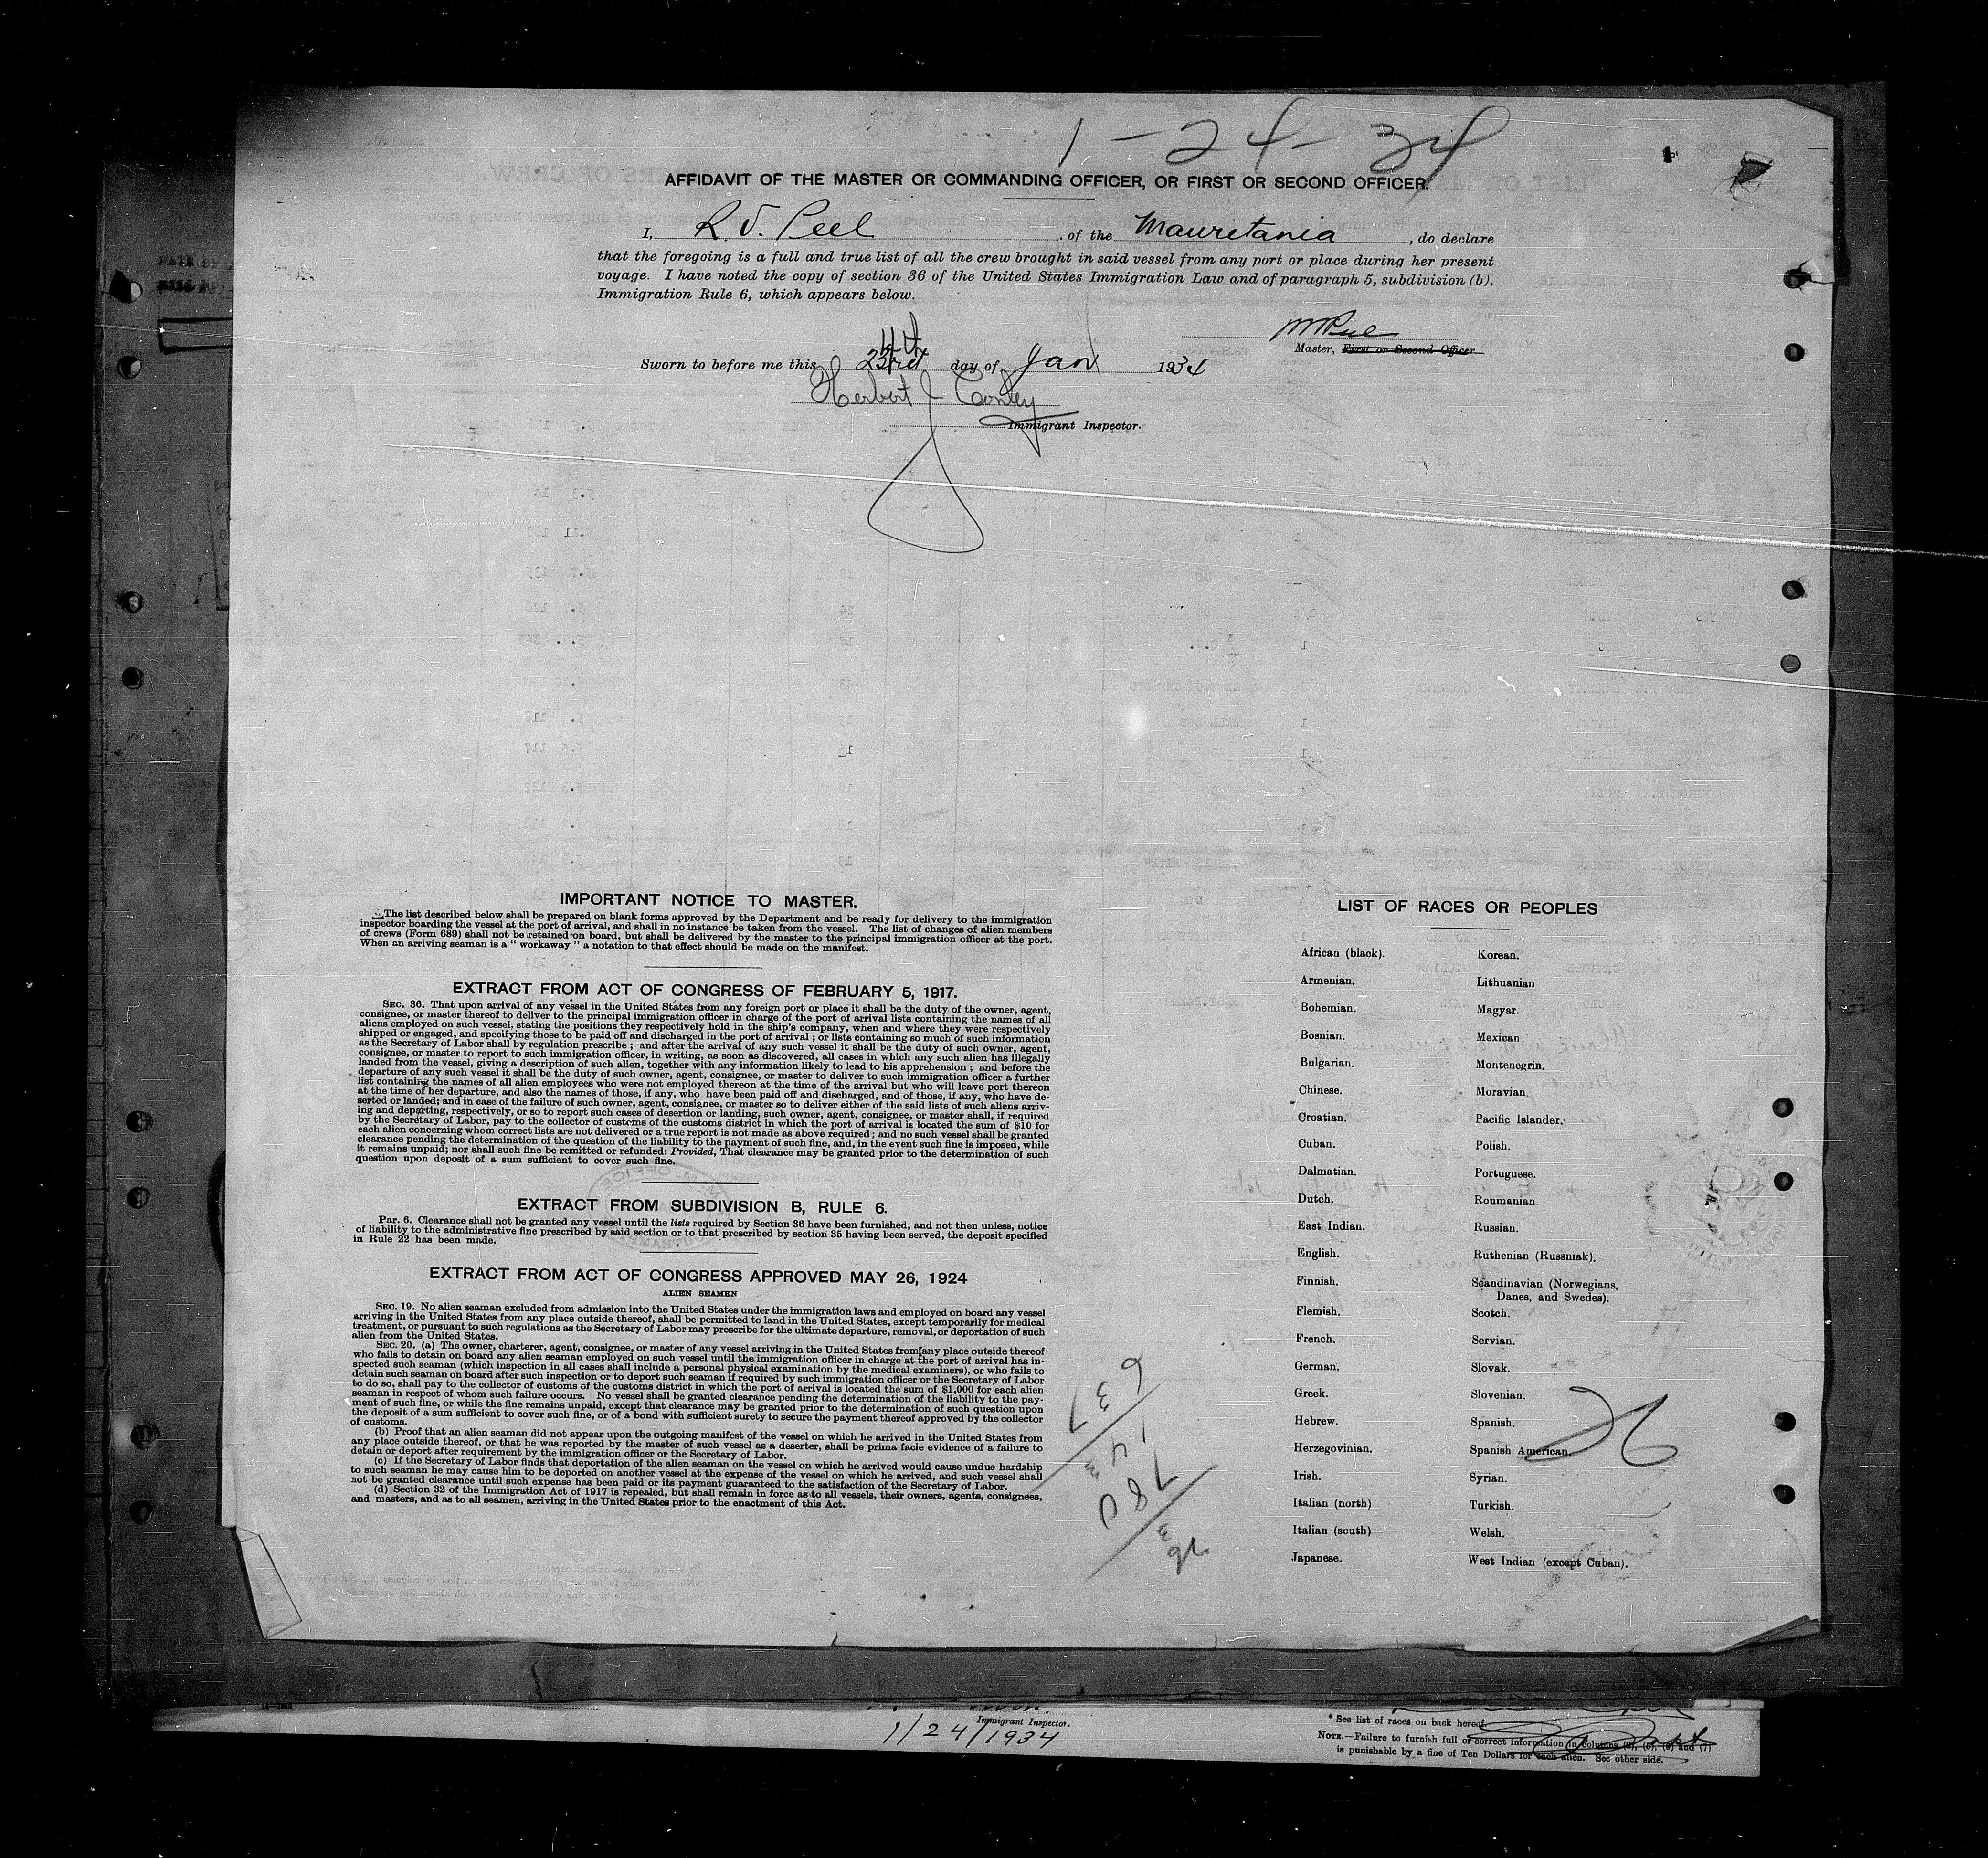 1-24-34
AFFIDAVIT OF THE MASTER OR COMMANDING OFFICER, OR FIRST OR SECOND OFFICER.
I, R.V. Peel of the Mauretania, do declare
that the foregoing is a full and true list of all the crew brought in said vessel from any port or place during her present
voyage. I have noted the copy of section 36 of the United States Immigration Law and of paragraph 5, subdivision (b).
Immigration Rule 6, which appears below.
Master, First or Second Officer
Sworn to before me this 23rd 4th day of Jan 1934
Herbert J Conley
Immigrant Inspector.
IMPORTANT NOTICE TO MASTER.
The list described below shall be prepared on blank forms approved by the Department and be ready for delivery to the immigration
inspector boarding the vessel at the port of arrival, and shall in no instance be taken from the vessel. The list of changes of alien members
of crews (Form 689) shall not be retained on board, but shall be delivered by the master to the principal immigration officer at the port.
When an arriving seaman is a “ workaway ” a notation to that effect should be made on the manifest.
EXTRACT FROM ACT OF CONGRESS OF FEBRUARY 5, 1917.
SEC. 36. That upon arrival of any vessel in the United States from any foreign port or place it shall be the duty of the owner, agent,
consignee, or master thereof to deliver to the principal immigration officer in charge of the port of arrival lists containing the names of all
aliens employed on such vessel, stating the positions they respectively hold in the ship's company, when and where they were respectively
shipped or engaged, and specifying those to be paid off and discharged in the port of arrival ; or lists containing so much of such information
as the Secretary of Labor shall by regulation prescribe ; and after the arrival of any such vessel it shall be the duty of such owner, agent,
consignee, or master to report to such immigration officer, in writing, as soon as discovered, all cases in which any such alien has illegally
landed from the vessel, giving a description of such alien, together with any information likely to lead to his apprehension ; and before the
departure of any such vessel it shall be the duty of such owner, agent, consignee, or master to deliver to such immigration officer a further
list containing the names of all alien employees who were not employed thereon at the time of the arrival but who will leave port thereon
at the time of her departure, and also the names of those, if any, who have been paid off and discharged, and of those, if any, who have de-
serted or landed; and in case of the failure of such owner, agent, consignee, or master so to deliver either of the said lists of such aliens arriv-
ing and departing, respectively, or so to report such cases of desertion or landing, such owner, agent, consignee, or master shall, if required
by the Secretary of Labor, pay to the collector of customs of the customs district in which the port of arrival is located the sum of $10 for
each alien concerning whom correct lists are not delivered or a true report is not made as above required ; and no such vessel shall be granted
clearance pending the determination of the question of the liability to the payment of such fine, and, in the event such fine is imposed, while
it remains unpaid; nor shall such fine be remitted or refunded: Provided, That clearance may be granted prior to the determination of such
question upon deposit of a sum sufficient to cover such fine.
EXTRACT FROM SUBDIVISION B, RULE 6.
Par. 6. Clearance shall not be granted any vessel until the lists required by Section 36 have been furnished, and not then unless, notice
of liability to the administrative fine prescribed by said section or to that prescribed by section 35 having been served, the deposit specified
in Rule 22 has been made.
EXTRACT FROM ACT OF CONGRESS APPROVED MAY 26, 1924
ALIEN SEAMEN
SEC. 19. No alien seaman excluded from admission into the United States under the immigration laws and employed on board any vessel
arriving in the United States from any place outside thereof, shall be permitted to land in the United States, except temporarily for medical
treatment, or pursuant to such regulations as the Secretary of Labor may prescribe for the ultimate departure, removal, or deportation of such
alien from the United States.
SEC. 20. (a) The owner, charterer, agent, consignee, or master of any vessel arriving in the United States from any place outside thereof
who fails to detain on board any alien seaman employed on such vessel until the immigration officer in charge at the port of arrival has in-
spected such seaman (which inspection in all cases shall include a personal physical examination by the medical examiners), or who fails to
detain such seaman on board after such inspection or to deport such seaman if required by such immigration officer or the Secretary of Labor
to do so, shall pay to the collector of customs of the customs district in which the port of arrival is located the sum of $1,000 for each alien
seaman in respect of whom such failure occurs. No vessel shall be granted clearance pending the determination of the liability to the pay-
ment of such fine, or while the fine remains unpaid, except that clearance may be granted prior to the determination of such question upon
the deposit of a sum sufficient to cover such fine, or of a bond with sufficient surety to secure the payment thereof approved by the collector
of customs.
(b) Proof that an alien seaman did not appear upon the outgoing manifest of the vessel on which he arrived in the United States from
any place outside thereof, or that he was reported by the master of such vessel as a deserter, shall be prima facie evidence of a failure to
detain or deport after requirement by the immigration officer or the Secretary of Labor.
(c) If the Secretary of Labor finds that deportation of the alien seaman on the vessel on which he arrived would cause undue hardship
to such seaman he may cause him to be deported on another vessel at the expense of the vessel on which he arrived, and such vessel shall
not be granted clearance until such expense has been paid or its payment guaranteed to the satisfaction of the Secretary of Labor.
(d) Section 32 of the Immigration Act of 1917 is repealed, but shall remain in force as to all vessels, their owners, agents, consignees,
and masters, and as to all seamen, arriving in the United States prior to the enactment of this Act.
LIST OF RACES OR PEOPLES
African (black).
Armenian.
Bohemian.
Bosnian.
Bulgarian.
Chinese.
Croatian.
Cuban.
Dalmatian.
Dutch.
East Indian.
English.
Finnish.
Flemish.
French.
German.
Greek.
Hebrew.
Herzegovinian.
Irish.
Italian (north)
Italian (south)
Japanese.
Korean.
Lithuanian
Magyar.
Mexican
Montenegrin.
Moravian
Pacific Islander.
Polish.
Portuguese.
Roumanian
Russian.
Ruthenian (Russniak).
Scandinavian (Norwegians,
Danes, and Swedes).
Scotch.
Servian.
Slovak.
Slovenian.
Spanish.
Spanish American
Syrian.
Turkish.
Welsh.
West Indian (except Cuban).
Immigrant Inspector.
1/24/1934
* See list of races on back hereof.
NOTE.—Failure to furnish full or correct information in columns (2), (5), (6) and (7)
is punishable by a fine of Ten Dollars for each alien. See other side.